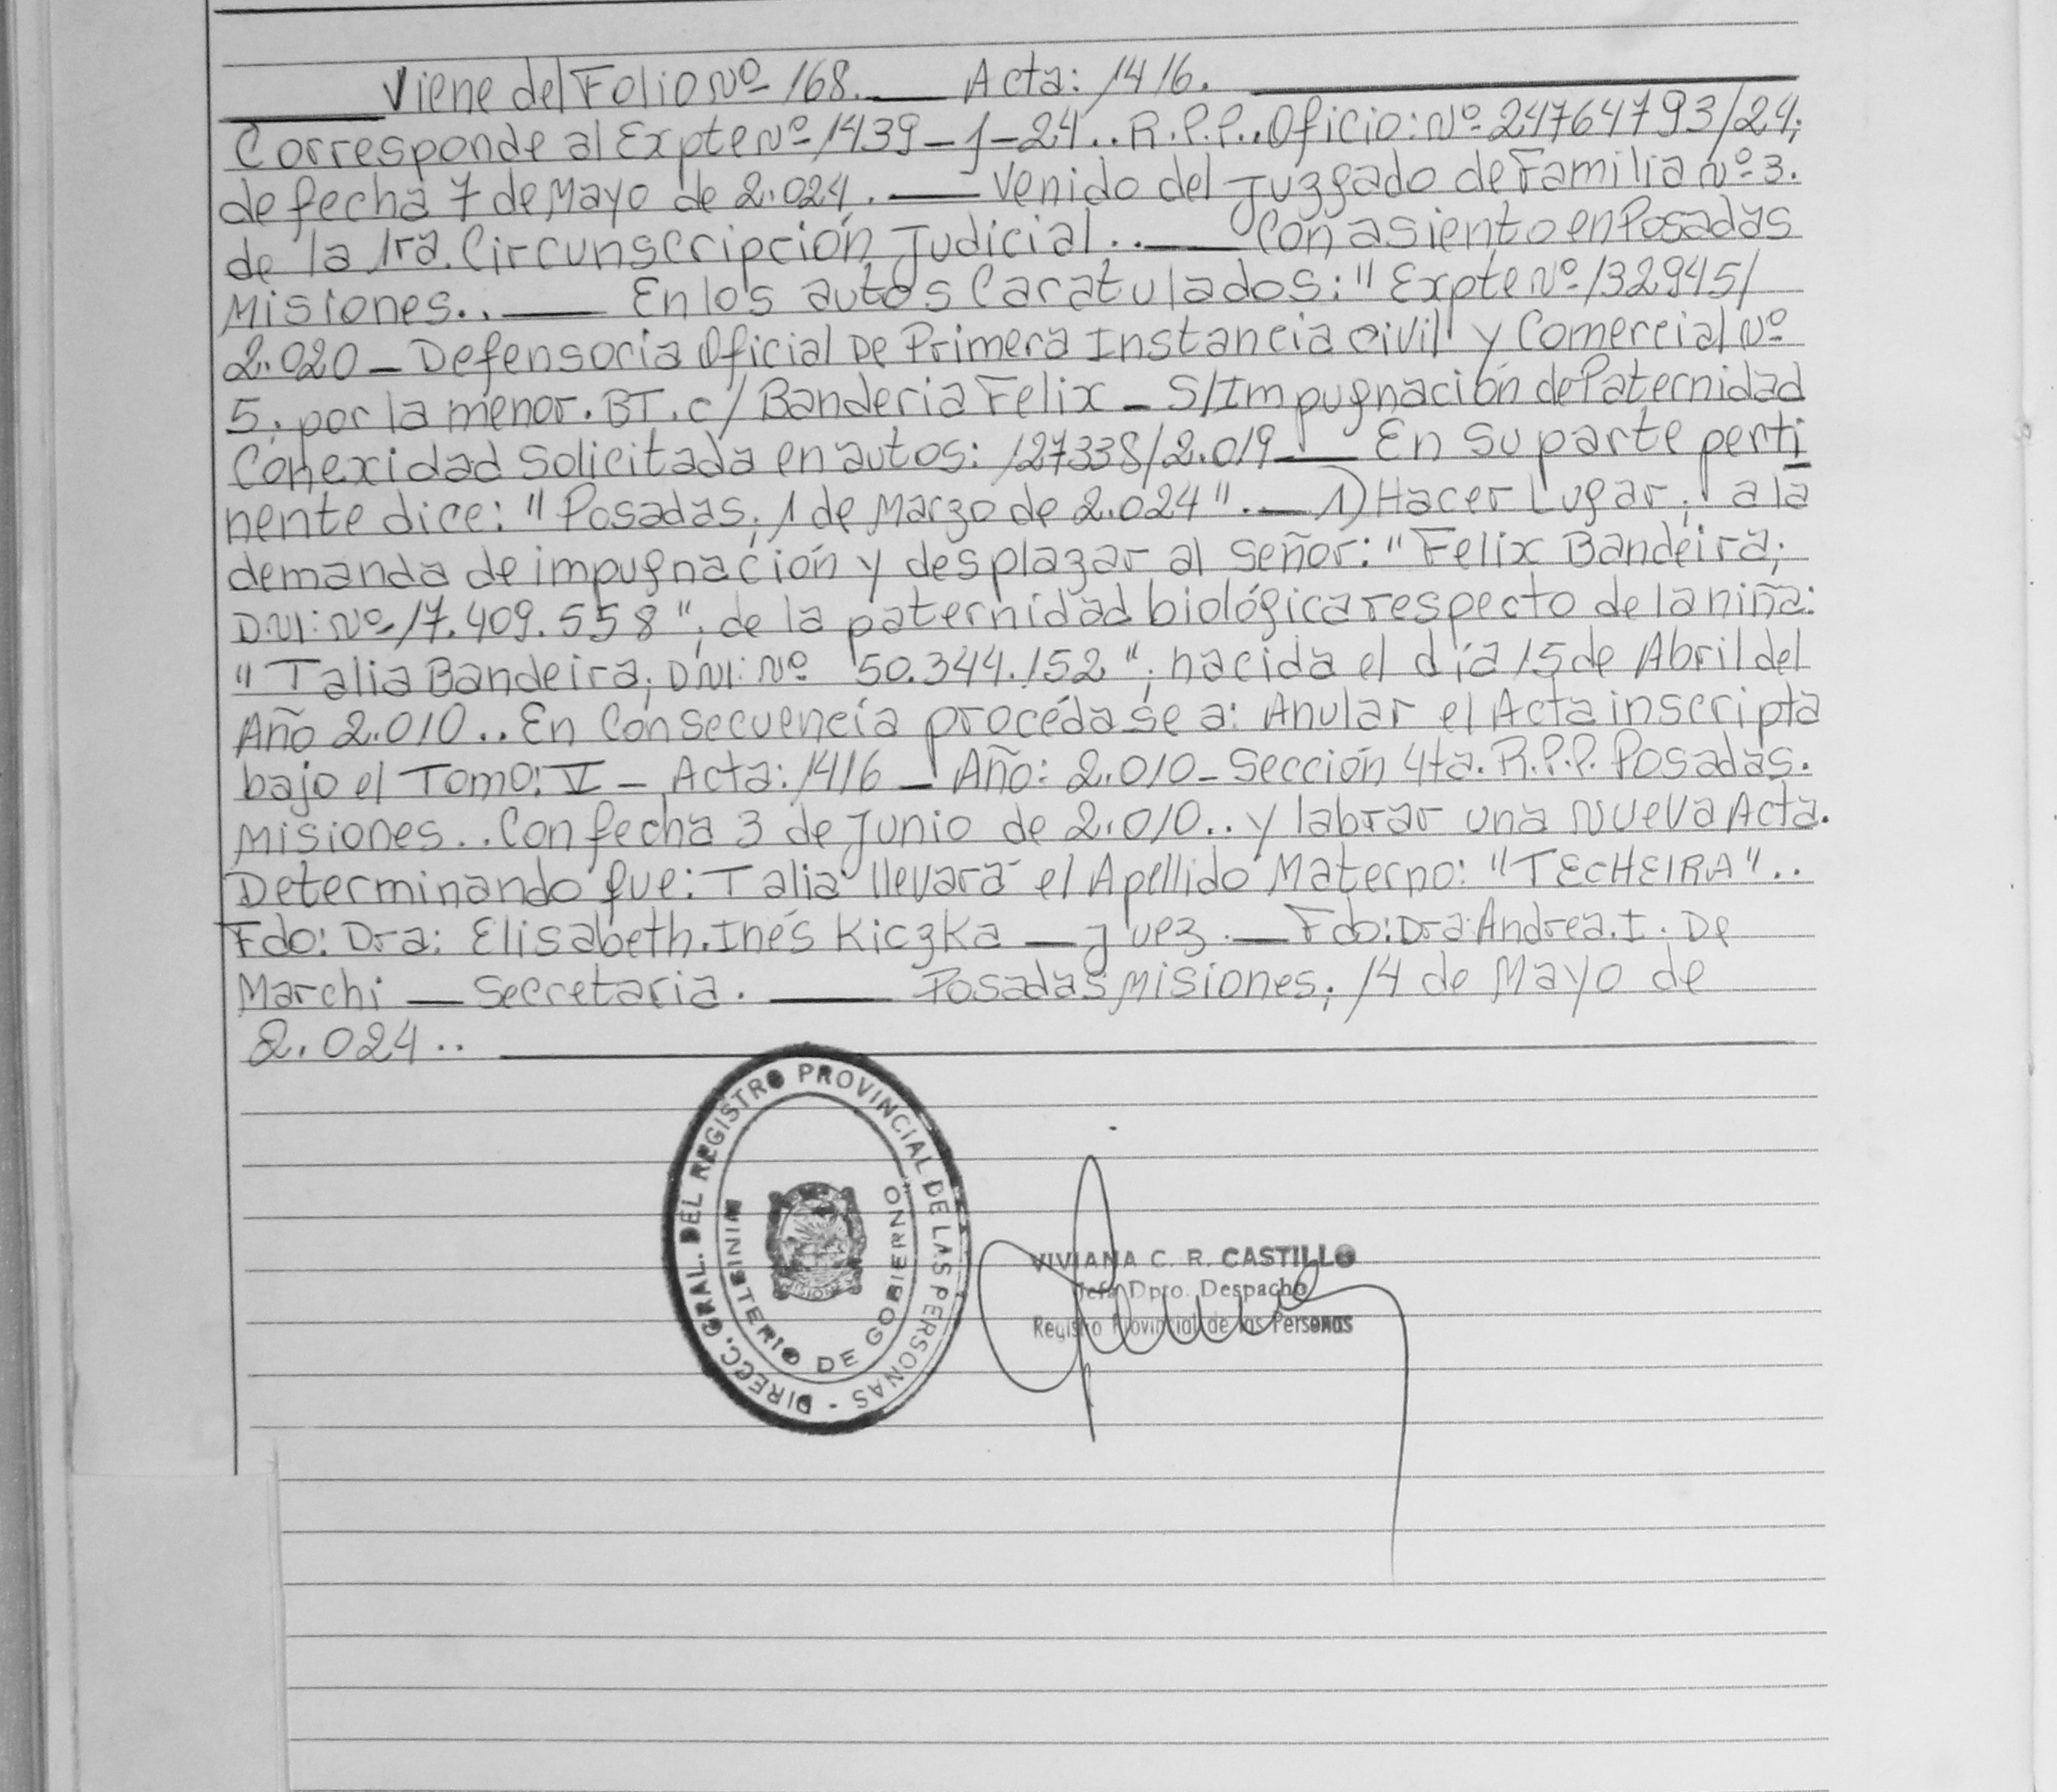 Viene del Folio Nº 168. Acta: 1416.
Corresponde al Expte Nº 1439-J-24.. R.P.P.. Oficio: Nº 24764793/24;
de fecha 7 de Mayo de 2.024. Venido del Juzgado de Familia Nº 3.
de la 1ra. Circunscripción Judicial.. Con asiento en Posadas
Misiones.. En los autos Caratulados: "Expte Nº 132945/
2.020 - Defensoria Oficial De Primera Instancia civil y Comercial Nº
5; por la menor. BT. c/ Banderia Felix - S/Impugnación de Paternidad
Conexidad Solicitada en autos: 127338/2.019 En su parte perti
nente dice: "Posadas; 1 de Marzo de 2.024". 1) Hacer Lugar; a la
demanda de impugnación y desplazar al Señor: "Felix Bandeira;
D.N.I: Nº 17.409.558"; de la paternidad biológica respecto de la niña:
"Talia Bandeira; DNI: Nº 50.344.152"; nacida el día 15 de Abril del
Año 2.010.. En Consecuencia procédase a: Anular el Acta inscripta
bajo el Tomo: V - Acta: 1416 - Año: 2.010 - Sección 4ta. R.P.P. Posadas.
Misiones.. Con fecha 3 de Junio de 2.010.. y labrar una nueva Acta.
Determinando que: Talia llevará el Apellido Materno: "TECHEIRA"..
Fdo: Dra: Elisabeth. Inés Kiczka - Juez. Fdo: Dra. Andrea. I. De
Marchi - Secretaria. Posadas Misiones; 14 de Mayo de
2.024..
DIRECC. GRAL. DEL REGISTRO PROVINCIAL DE LAS PERSONAS -
MINISTERIO DE GOBIERNO
MISIONES
VIVIANA C. R. CASTILLO
Jefa Dpto. Despacho
Registro Provincial de las Personas